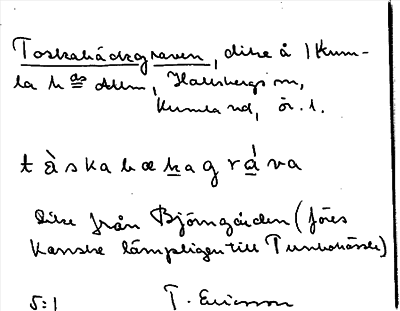 Toskabäcksgraven, dike å 1 Kum-
la hds allm, Hallsbergs sn,
Kumla hd, ör. l.
t à s k a b æ k a g r á v a
Dike från Björngården (föres
kanske lämpligen till
5:1 T. Ericsson